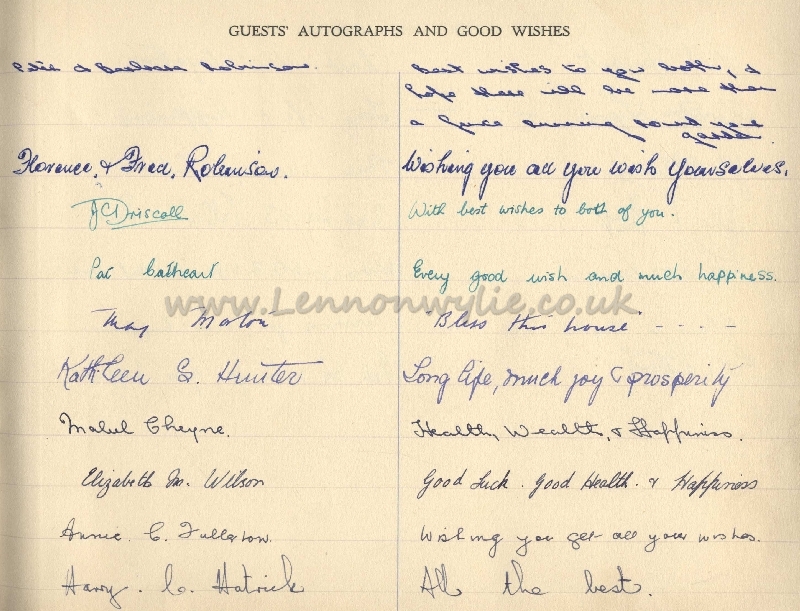 GUESTS' AUTOGRAPHS AND GOOD WISHES
& Barbara Robinson. Best wishes to you both, &
hope there will be more than
a fence running round your
garden.
Florence, & Fred, Robinson. Wishing you all you wish yourselves.
JC Driscoll With best wishes to both of you.
Pat Cathcart Every good wish and much happiness.
www.Lennonwylie.co.uk
May Morton "Bless this house" - - - -
Kathleen G. Hunter Long life, much joy & prosperity
Mabel Cheyne. Health, Wealth, & Happiness.
Elizabeth M. Wilson Good Luck. Good Health. & Happiness
Annie. C. Fullerton. Wishing you get all your wishes.
Harry. C. Hatrick All the best.